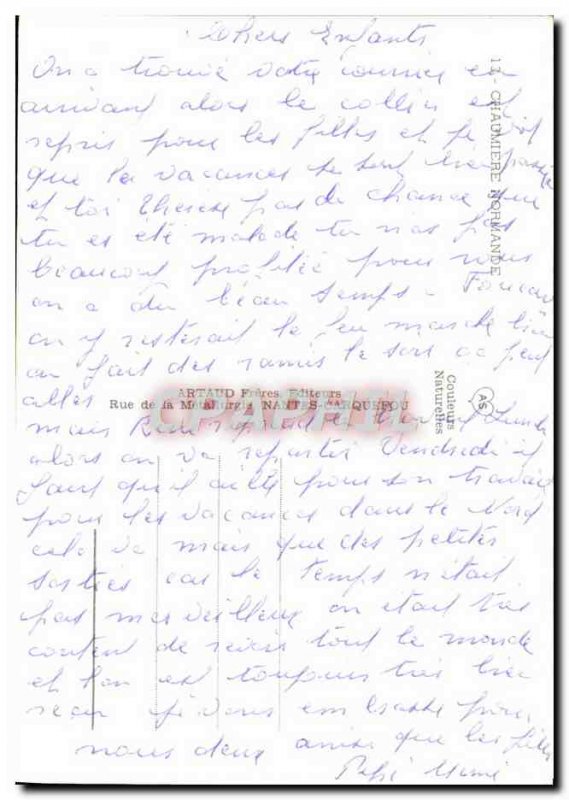 Chers Enfants
On a trouvé votre courrier en
arrivant alors le collier est
repris pour les filles et je vois
que les vacances se sont bien
et toi Thérèse pas de chance que
tu es été malade tu n'as pas
beaucoup profitée pour nous
on a du beau temps -
on y resterait le feu marche bien
on fait des ramis le sort ca peut
aller
mais Lundi
alors on va repartir Vendredi il
faut qu'il aille pour son travail
pour les vacances dans le Nord
cela va mais que des petites
sorties car le temps n'était
pas merveilleux on était très
content de revoir tout le monde
et l'on est toujours très bien
reçu je vous embrasse pour
nous deux ainsi que les filles
Papi Mimi
12 - CHAUMIERE NORMANDE
ARTAUD Frères, Editeurs
Rue de la Métallurgie NANTES-CARQUEFOU
Couleurs
Naturelles
AS